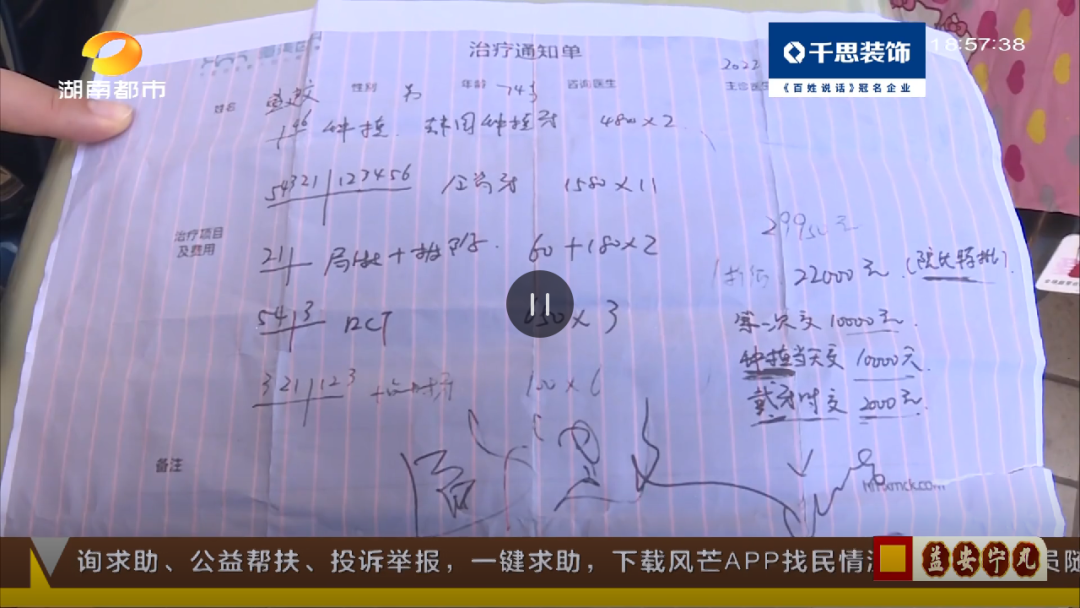 湖南都市
千思装饰
《百姓说话》冠名企业
18:57:38
治疗通知单
2022
姓名 性别 年龄 74岁 咨询医生 主诊医生
46 种植 韩国种植牙 4800×2
54321 123456 全瓷牙 1580×11
治疗项目
及费用
29950元
21 局麻+拔除 60+180×2
22000元 (院长特批)
54 3 RCT 650×3
第一次交 10000元
种植当天交 10000元
321 123 100×6
戴牙时交 2000元
备注
询求助、公益帮扶、投诉举报，一键求助，下载风芒APP找民情
益安宁丸
员随